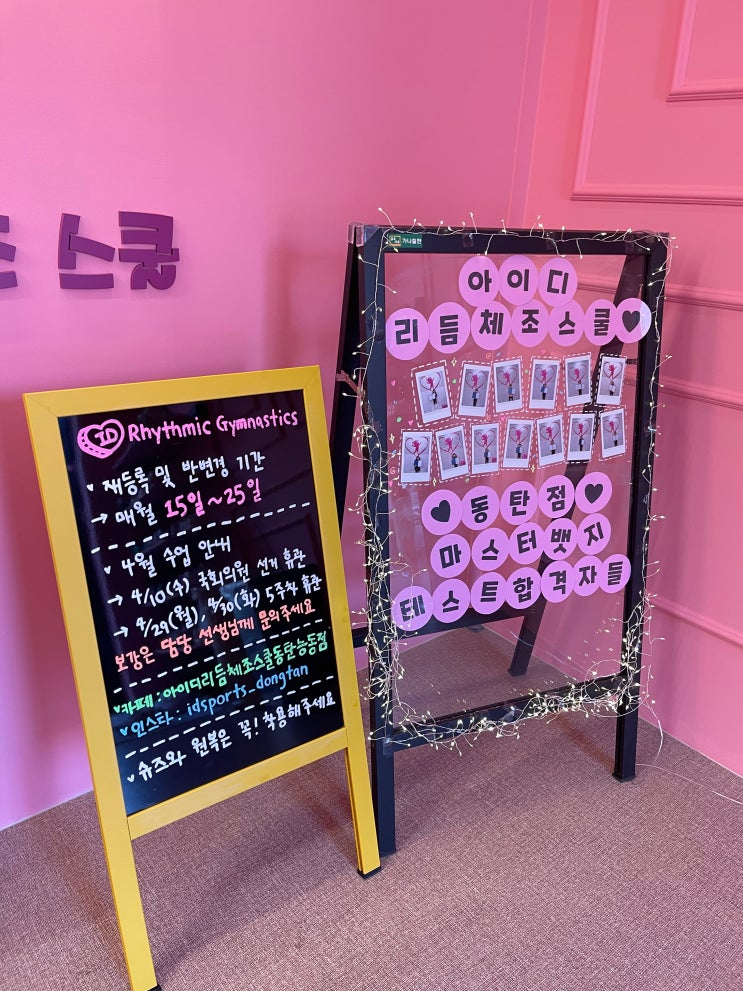 조 스쿨
ID Rhythmic Gymnastics
재등록 및 반변경 기간
→ 매월 15일~25일
4월 수업 안내
→ 4/10(수) 국회의원 선거 휴관
→ 4/29(월), 4/30(화) 5주차 휴관
보강은 담당 선생님께 문의주세요
카페 : 아이디리듬체조스쿨동탄능동점
인스타 : idsports_dongtan
슈즈와 원복은 꼭! 착용해주세요
가나칠판
아이디
리듬체조스쿨♥
♥동탄점♥
마스터뱃지
테스트합격자들